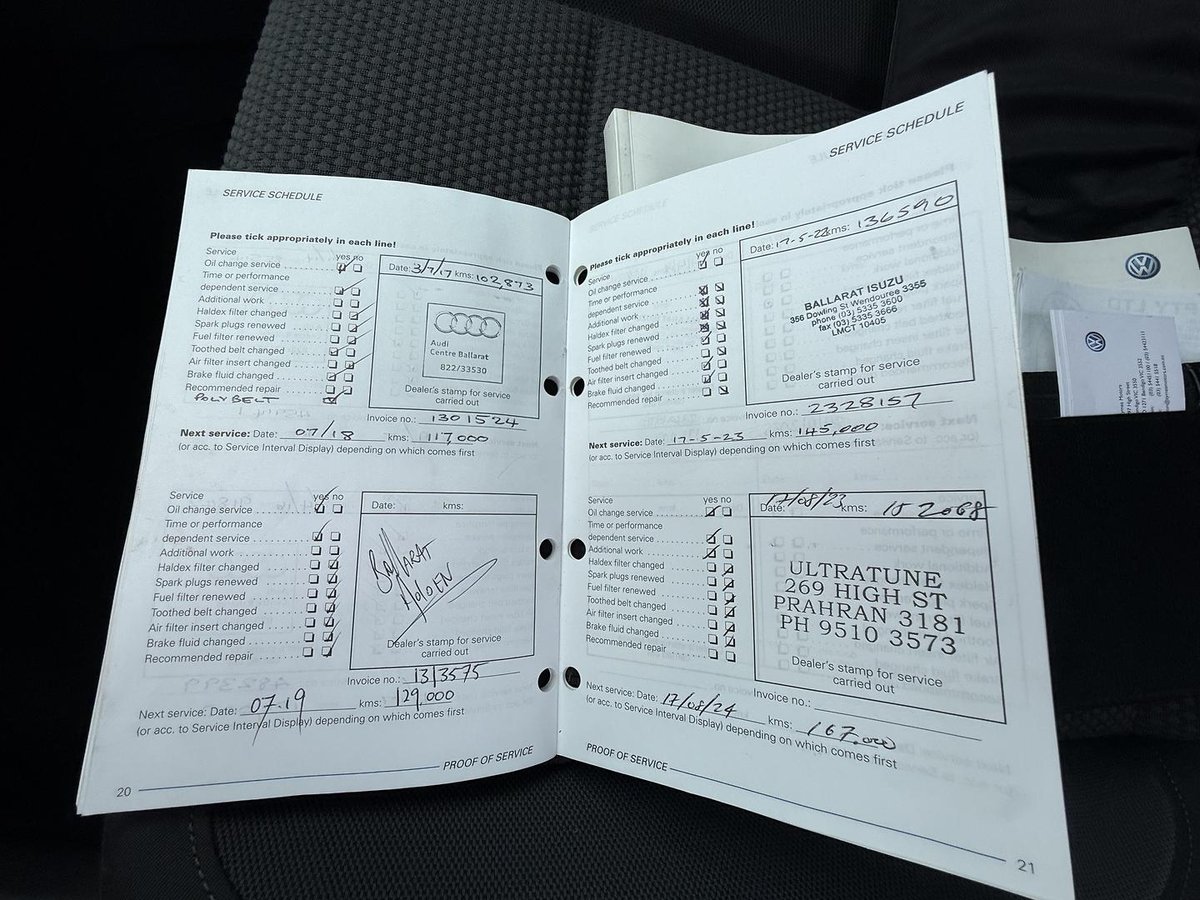 SERVICE SCHEDULE
Please tick appropriately in each line!
Service yes no
Oil change service
Time or performance
dependent service
Additional work
Haldex filter changed
Spark plugs renewed
Fuel filter renewed
Toothed belt changed
Air filter insert changed
Brake fluid changed
Recommended repair
POLY BELT
Date: 3/7/17 kms: 102,873
Audi
Centre Ballarat
822/33530
Dealer's stamp for service
carried out
Invoice no.: 1301524
Next service: Date: 07/18 kms: 117,000
(or acc. to Service Interval Display) depending on which comes first
Service yes no
Oil change service
Time or performance
dependent service
Additional work
Haldex filter changed
Spark plugs renewed
Fuel filter renewed
Toothed belt changed
Air filter insert changed
Brake fluid changed
Recommended repair
Date: kms:
Ballarat
Dealer's stamp for service
carried out
Invoice no.: 1313575
Next service: Date: 07.19 kms: 129,000
(or acc. to Service Interval Display) depending on which comes first
PROOF OF SERVICE
20
SERVICE SCHEDULE
Please tick appropriately in each line!
Service yes no
Oil change service
Time or performance
dependent service
Additional work
Haldex filter changed
Spark plugs renewed
Fuel filter renewed
Toothed belt changed
Air filter insert changed
Brake fluid changed
Recommended repair
Date: 17-5-23 kms: 136590
BALLARAT ISUZU
356 Dowling St Wendouree 3355
phone (03) 5335 3600
fax (03) 5335 3666
LMCT 10405
Dealer's stamp for service
carried out
Invoice no.: 2328157
Next service: Date: 17-5-23 kms: 145,000
(or acc. to Service Interval Display) depending on which comes first
Service yes no
Oil change service
Time or performance
dependent service
Additional work
Haldex filter changed
Spark plugs renewed
Fuel filter renewed
Toothed belt changed
Air filter insert changed
Brake fluid changed
Recommended repair
Date: 17/08/23 kms: 152068
ULTRATUNE
269 HIGH ST
PRAHRAN 3181
PH 9510 3573
Dealer's stamp for service
carried out
Invoice no.:
Next service: Date: 17/08/24 kms: 167.000
(or acc. to Service Interval Display) depending on which comes first
PROOF OF SERVICE
21